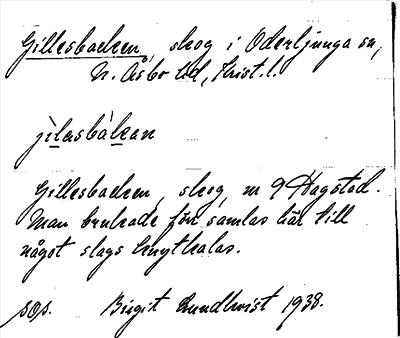 Gillesbacken, skog i Oderljunga sn,
N. Åsbo hd, Krist. l.
jìlasbàkan
Gillesbacken, skog, nr 9 Hagstad.
Man brukade förr samlas här till
något slags knytkalas.
sos. Birgit Lundkvist 1938.